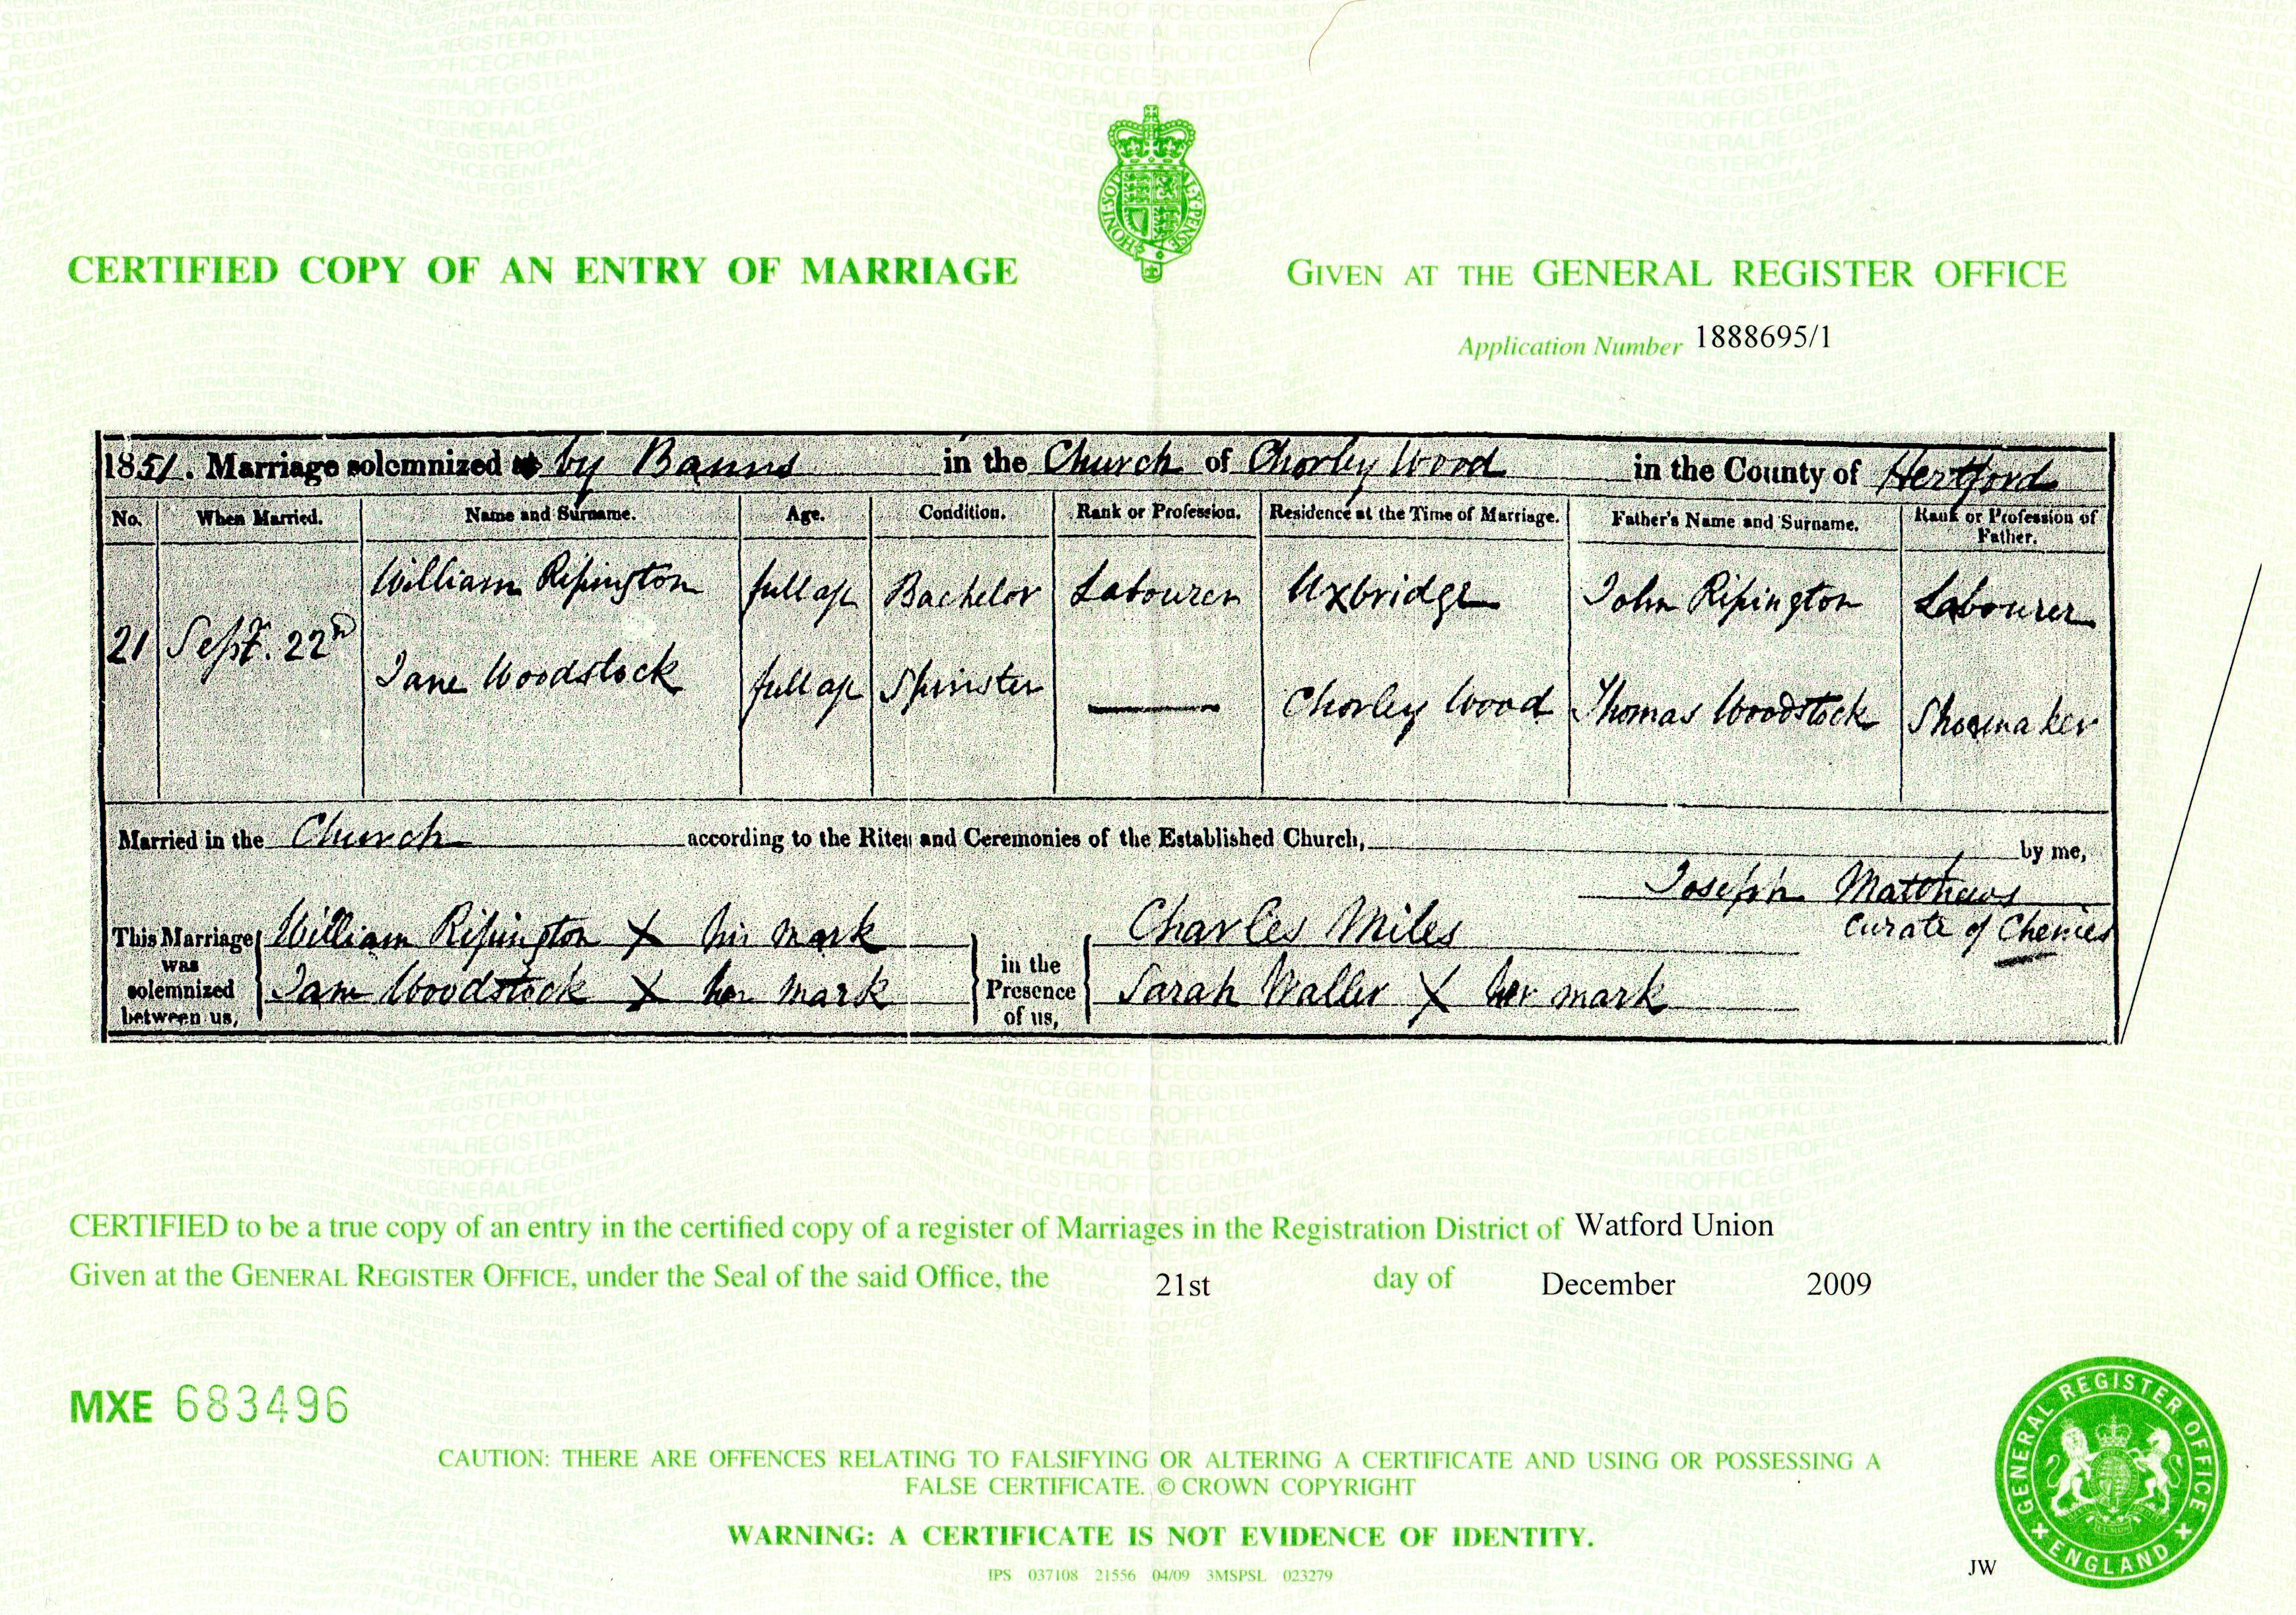 CERTIFIED COPY OF AN ENTRY OF MARRIAGE
GIVEN AT THE GENERAL REGISTER OFFICE
Application Number 1888695/1
1851. Marriage solemnized by Banns in the Church of Chorley Wood in the County of Hertford
No. When Married. Name and Surname. Age. Condition. Rank or Profession. Residence at the Time of Marriage. Father's Name and Surname. Rank or Profession of Father.
William Ripington full age Bachelor Labourer Uxbridge John Ripington Labourer
21 Sept. 22nd
Jane Woodstock full age Spinster Chorley Wood Thomas Woodstock Shoemaker
Married in the Church according to the Rites and Ceremonies of the Established Church, by me,
Joseph Matthews
Curate of Chenies
This Marriage was solemnized between us,
William Ripington X his mark
Jane Woodstock X her mark
in the Presence of us,
Charles Miles
Sarah Waller X her mark
CERTIFIED to be a true copy of an entry in the certified copy of a register of Marriages in the Registration District of Watford Union
Given at the GENERAL REGISTER OFFICE, under the Seal of the said Office, the 21st day of December 2009
MXE 683496
CAUTION: THERE ARE OFFENCES RELATING TO FALSIFYING OR ALTERING A CERTIFICATE AND USING OR POSSESSING A
FALSE CERTIFICATE. © CROWN COPYRIGHT
WARNING: A CERTIFICATE IS NOT EVIDENCE OF IDENTITY.
IPS 037108 21556 04/09 3MSPSL 023279
JW
GENERAL REGISTER OFFICE
ENGLAND